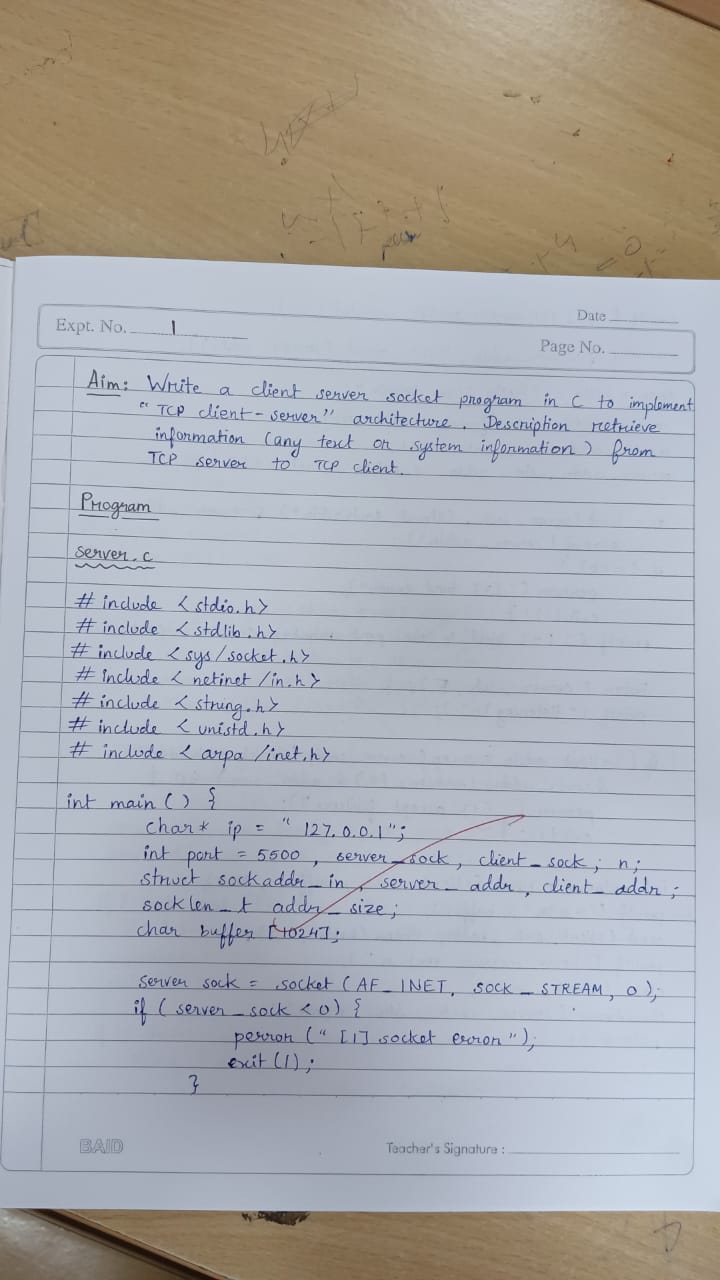 Date
Expt. No. 1
Page No.
Aim: Write a client server socket program in C to implement
"TCP client-server" architecture. Description retrieve
information (any text or system information) from
TCP server to TCP client.
Program
server.c
# include <stdio.h>
# include <stdlib.h>
# include <sys/socket.h>
# include <netinet/in.h>
# include <string.h>
# include <unistd.h>
# include <arpa/inet.h>
int main() {
char* ip = "127.0.0.1";
int port = 5500, server_sock, client_sock; n;
struct sockaddr_in, server_addr, client_addr;
socklen_t addr_size;
char buffer [1024];
server sock = socket (AF_INET, SOCK_STREAM, 0);
if (server_sock < 0) {
perror ("[1] socket error");
exit (1);
}
BAID
Teacher's Signature :